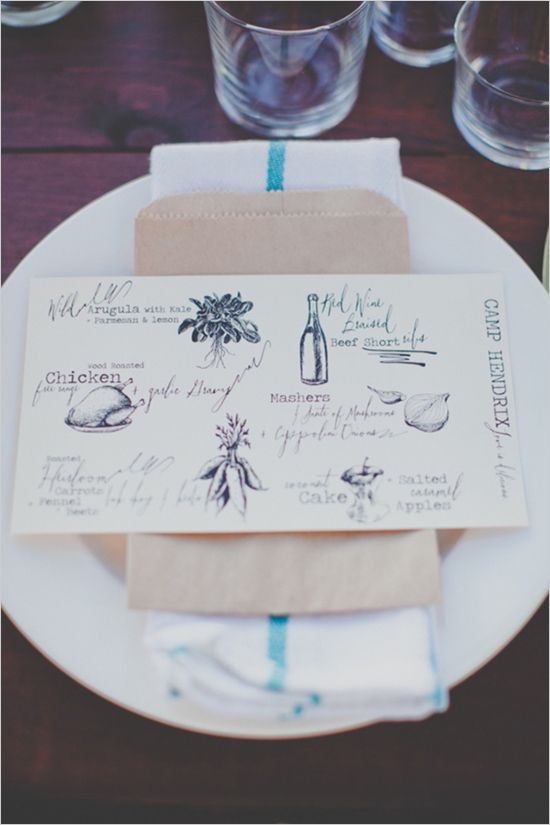 Wild Arugula with Kale
+ Parmesan & lemon
Red Wine
Braised
Beef Short ribs
Wood Roasted
Chicken
free range + garlic Gravy
Mashers
+ Saute of Mushrooms
+ Cippolini Onions
Roasted
Heirloom
Carrots
+ Fennel
+ Beets
coconut
Cake
+ Salted
caramel
Apples
CAMP HENDRIX